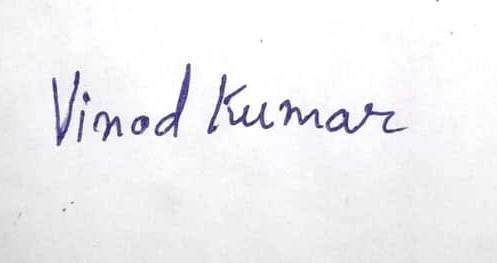 Vinod Kumar